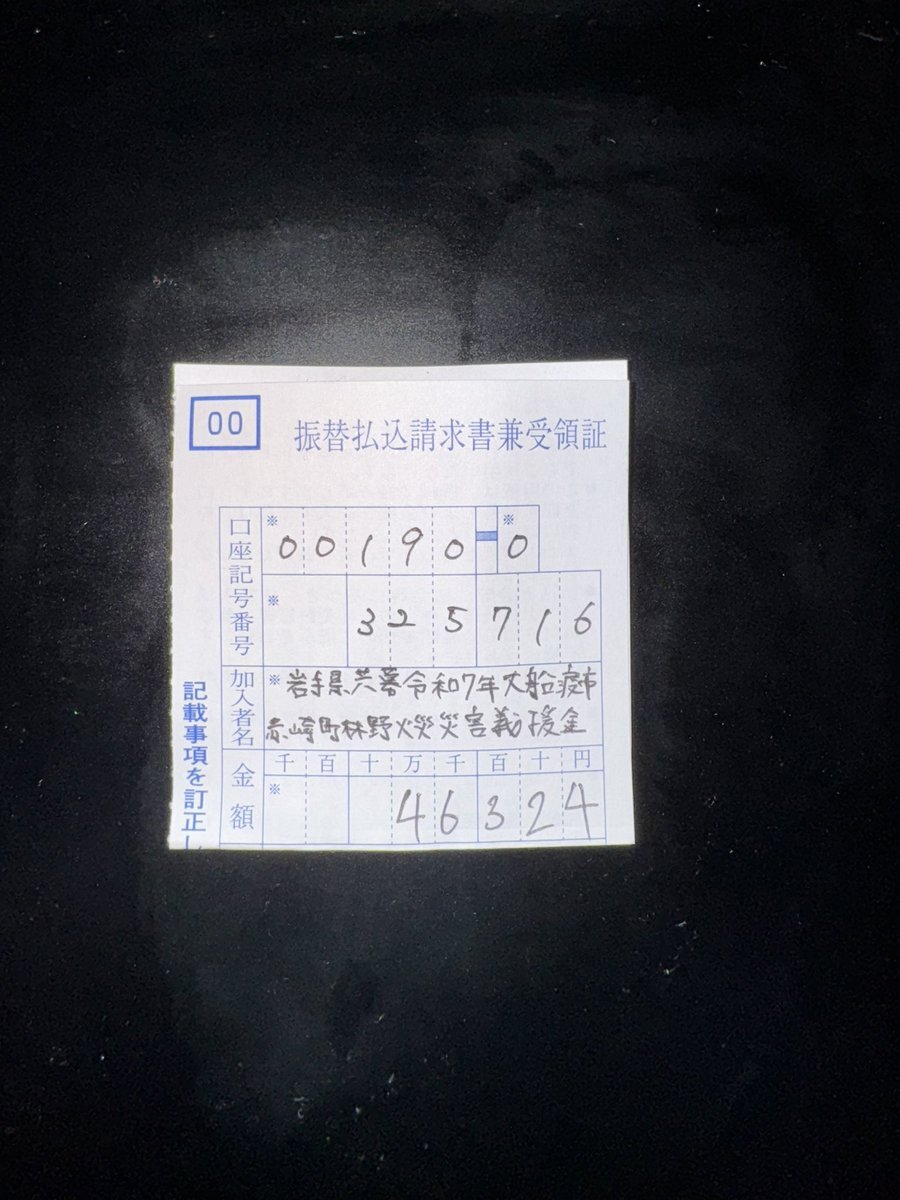 00
振替払込請求書兼受領証
口座記号番号
※ 00190-0
※ 325716
加入者名
※岩手県共募令和7年大船渡市
赤崎町林野火災災害義援金
金額
千百十万千百十円
※ 46324
記載事項を訂正し